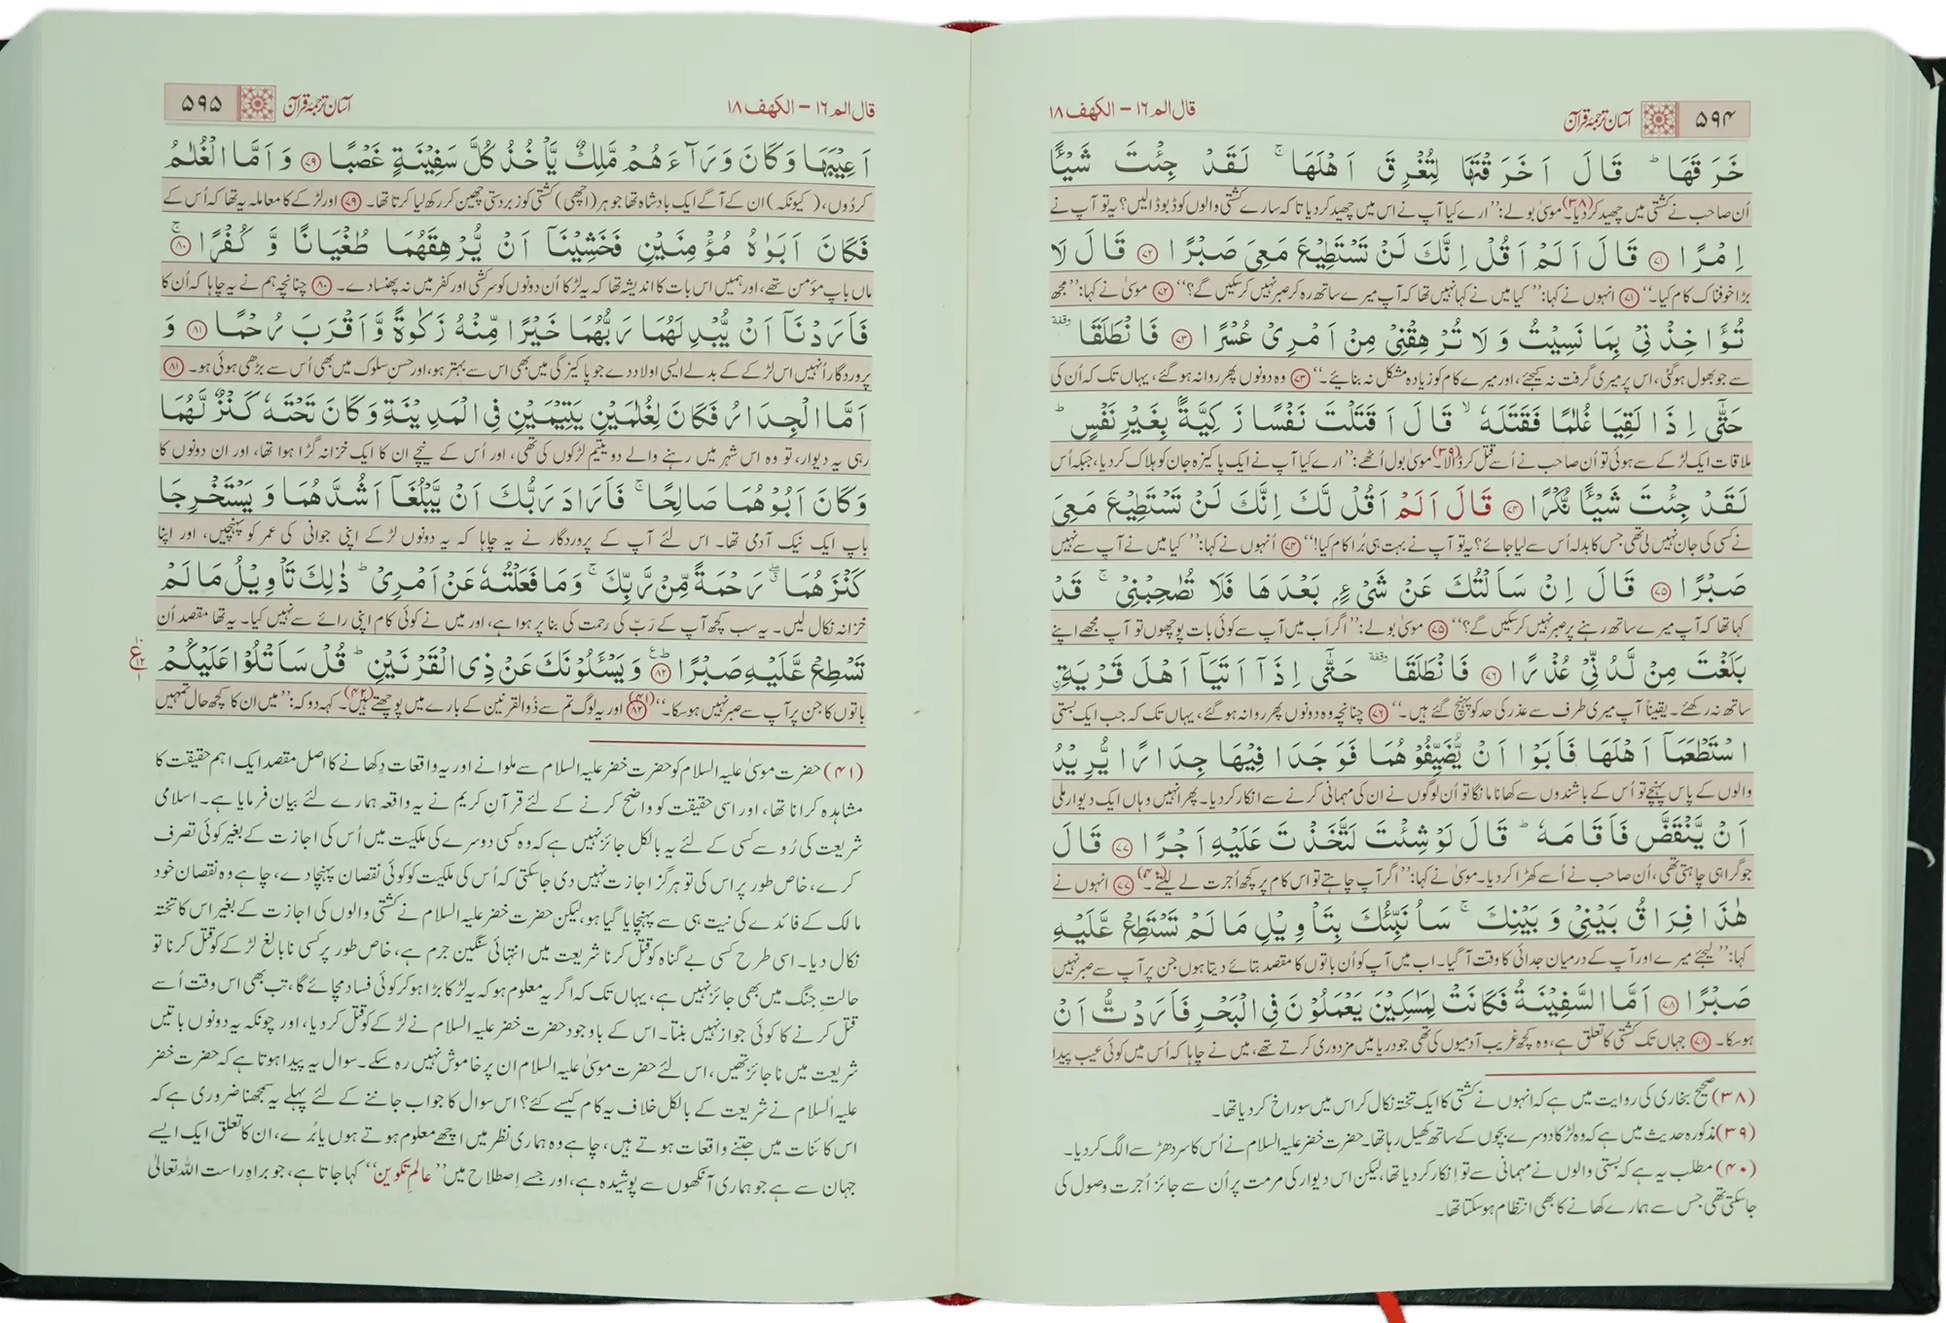 ۵۹۴ آسان ترجمۂ قرآن قال الم ۱۶ – الکھف ۱۸
خَرَقَهَا ؕ قَالَ اَخَرَقْتَهَا لِتُغْرِقَ اَهْلَهَا ۚ لَقَدْ جِئْتَ شَيْـًٔا
اُن صاحب نے کشتی میں چھید کردیا۔(۳۸) موسیٰ بولے: ’’ارے کیا آپ نے اس میں چھید کردیا تاکہ سارے کشتی والوں کو ڈبو ڈالیں؟ یہ تو آپ نے
اِمْرًا ۷۱ قَالَ اَلَمْ اَقُلْ اِنَّكَ لَنْ تَسْتَطِيْعَ مَعِيَ صَبْرًا ۷۲ قَالَ لَا
بڑا خوفناک کام کیا۔‘‘ ۷۱ انہوں نے کہا: ’’کیا میں نے کہا نہیں تھا کہ آپ میرے ساتھ رہ کر صبر نہیں کرسکیں گے؟‘‘ ۷۲ موسیٰ نے کہا: ’’مجھ
تُؤَاخِذْنِيْ بِمَا نَسِيْتُ وَ لَا تُرْهِقْنِيْ مِنْ اَمْرِيْ عُسْرًا ۷۳ فَانْطَلَقَا وقفۃ
سے جو بھول ہوگئی، اس پر میری گرفت نہ کیجئے، اور میرے کام کو زیادہ مشکل نہ بنائیے۔‘‘ ۷۳ وہ دونوں پھر روانہ ہوگئے، یہاں تک کہ اُن کی
حَتّٰۤى اِذَا لَقِيَا غُلٰمًا فَقَتَلَهٗ ۙ قَالَ اَقَتَلْتَ نَفْسًا زَكِيَّةًۢ بِغَيْرِ نَفْسٍ ؕ
ملاقات ایک لڑکے سے ہوئی تو اُن صاحب نے اُسے قتل کر ڈالا۔(۳۹) موسیٰ بول اُٹھے: ’’ارے کیا آپ نے ایک پاکیزہ جان کو ہلاک کردیا، جبکہ اُس
لَقَدْ جِئْتَ شَيْـًٔا نُّكْرًا ۷۴ قَالَ اَلَمْ اَقُلْ لَّكَ اِنَّكَ لَنْ تَسْتَطِيْعَ مَعِيَ
نے کسی کی جان نہیں لی تھی جس کا بدلہ اُس سے لیا جائے؟ یہ تو آپ نے بہت ہی بُرا کام کیا!‘‘ ۷۴ اُنہوں نے کہا: ’’کیا میں نے آپ سے نہیں
صَبْرًا ۷۵ قَالَ اِنْ سَاَلْتُكَ عَنْ شَيْءٍۭ بَعْدَهَا فَلَا تُصٰحِبْنِيْ ۚ قَدْ
کہا تھا کہ آپ میرے ساتھ رہنے پر صبر نہیں کرسکیں گے؟‘‘ ۷۵ موسیٰ بولے: ’’اگر اَب میں آپ سے کوئی بات پوچھوں تو آپ مجھے اپنے
بَلَغْتَ مِنْ لَّدُنِّيْ عُذْرًا ۷۶ فَانْطَلَقَا وقفۃ حَتّٰۤى اِذَاۤ اَتَيَاۤ اَهْلَ قَرْيَةِ ِۨ
ساتھ نہ رکھئے۔ یقیناً آپ میری طرف سے عذر کی حد کو پہنچ گئے ہیں۔‘‘ ۷۶ چنانچہ وہ دونوں پھر روانہ ہوگئے، یہاں تک کہ جب ایک بستی
اسْتَطْعَمَاۤ اَهْلَهَا فَاَبَوْا اَنْ يُّضَيِّفُوْهُمَا فَوَجَدَا فِيْهَا جِدَارًا يُّرِيْدُ
والوں کے پاس پہنچے تو اُس کے باشندوں سے کھانا مانگا تو اُن لوگوں نے ان کی مہمانی کرنے سے انکار کردیا۔ پھر انہیں وہاں ایک دیوار ملی
اَنْ يَّنْقَضَّ فَاَقَامَهٗ ؕ قَالَ لَوْ شِئْتَ لَتَّخَذْتَ عَلَيْهِ اَجْرًا ۷۷ قَالَ
جو گرا ہی چاہتی تھی، اُن صاحب نے اُسے کھڑا کردیا۔ موسیٰ نے کہا: ’’اگر آپ چاہتے تو اس کام پر کچھ اُجرت لے لیتے۔‘‘(۴۰) ۷۷ انہوں نے
هٰذَا فِرَاقُ بَيْنِيْ وَ بَيْنِكَ ۚ سَاُنَبِّئُكَ بِتَاْوِيْلِ مَا لَمْ تَسْتَطِعْ عَّلَيْهِ
کہا: ’’لیجئے میرے اور آپ کے درمیان جدائی کا وقت آگیا۔ اب میں آپ کو اُن باتوں کا مقصد بتائے دیتا ہوں جن پر آپ سے صبر نہیں
صَبْرًا ۷۸ اَمَّا السَّفِيْنَةُ فَكَانَتْ لِمَسٰكِيْنَ يَعْمَلُوْنَ فِي الْبَحْرِ فَاَرَدْتُّ اَنْ
ہوسکا۔ ۷۸ جہاں تک کشتی کا تعلق ہے، وہ کچھ غریب آدمیوں کی تھی جو دریا میں مزدوری کرتے تھے، میں نے چاہا کہ اُس میں کوئی عیب پیدا
(۳۸) صحیح بخاری کی روایت میں ہے کہ انہوں نے کشتی کا ایک تختہ نکال کر اس میں سوراخ کردیا تھا۔
(۳۹) مذکورہ حدیث میں ہے کہ وہ لڑکا دوسرے بچوں کے ساتھ کھیل رہا تھا۔ حضرت خضر علیہ السلام نے اُس کا سر دھڑ سے الگ کردیا۔
(۴۰) مطلب یہ ہے کہ بستی والوں نے مہمانی سے تو انکار کردیا تھا، لیکن اس دیوار کی مرمت پر اُن سے جائز اُجرت وصول کی
جاسکتی تھی جس سے ہمارے کھانے کا بھی انتظام ہوسکتا تھا۔
قال الم ۱۶ – الکھف ۱۸ آسان ترجمۂ قرآن ۵۹۵
اَعِيْبَهَا وَكَانَ وَرَآءَهُمْ مَّلِكٌ يَّاْخُذُ كُلَّ سَفِيْنَةٍ غَصْبًا ۷۹ وَ اَمَّا الْغُلٰمُ
کردُوں، (کیونکہ) ان کے آگے ایک بادشاہ تھا جو ہر (اچھی) کشتی کو زبردستی چھین کر رکھ لیا کرتا تھا۔ ۷۹ اور لڑکے کا معاملہ یہ تھا کہ اُس کے
فَكَانَ اَبَوٰهُ مُؤْمِنَيْنِ فَخَشِيْنَاۤ اَنْ يُّرْهِقَهُمَا طُغْيَانًا وَّ كُفْرًا ۚ ۸۰
ماں باپ مؤمن تھے، اور ہمیں اس بات کا اندیشہ تھا کہ یہ لڑکا اُن دونوں کو سرکشی اور کفر میں نہ پھنسا دے۔ ۸۰ چنانچہ ہم نے یہ چاہا کہ اُن کا
فَاَرَدْنَاۤ اَنْ يُّبْدِلَهُمَا رَبُّهُمَا خَيْرًا مِّنْهُ زَكٰوةً وَّ اَقْرَبَ رُحْمًا ۸۱ وَ
پروردگار اُنہیں اس لڑکے کے بدلے ایسی اولاد دے جو پاکیزگی میں بھی اس سے بہتر ہو، اور حسنِ سلوک میں بھی اُس سے بڑھی ہوئی ہو۔ ۸۱
اَمَّا الْجِدَارُ فَكَانَ لِغُلٰمَيْنِ يَتِيْمَيْنِ فِي الْمَدِيْنَةِ وَكَانَ تَحْتَهٗ كَنْزٌ لَّهُمَا
رہی یہ دیوار، تو وہ اس شہر میں رہنے والے دو یتیم لڑکوں کی تھی، اور اُس کے نیچے ان کا ایک خزانہ گڑا ہوا تھا، اور ان دونوں کا
وَكَانَ اَبُوْهُمَا صَالِحًا ۚ فَاَرَادَ رَبُّكَ اَنْ يَّبْلُغَاۤ اَشُدَّهُمَا وَ يَسْتَخْرِجَا
باپ ایک نیک آدمی تھا۔ اس لئے آپ کے پروردگار نے یہ چاہا کہ یہ دونوں لڑکے اپنی جوانی کی عمر کو پہنچیں، اور اپنا
كَنْزَهُمَا ۖۗ رَحْمَةً مِّنْ رَّبِّكَ ۚ وَمَا فَعَلْتُهٗ عَنْ اَمْرِيْ ؕ ذٰلِكَ تَاْوِيْلُ مَا لَمْ
خزانہ نکال لیں۔ یہ سب کچھ آپ کے رَبّ کی رحمت کی بنا پر ہوا ہے، اور میں نے کوئی کام اپنی رائے سے نہیں کیا۔ یہ تھا مقصد اُن
تَسْطِعْ عَّلَيْهِ صَبْرًا ۸۲ وَيَسْـَٔلُوْنَكَ عَنْ ذِي الْقَرْنَيْنِ ؕ قُلْ سَاَتْلُوْا عَلَيْكُمْ
باتوں کا جن پر آپ سے صبر نہیں ہوسکا۔‘‘(۴۱) ۸۲ اور یہ لوگ تم سے ذُوالقرنین کے بارے میں پوچھتے ہیں۔(۴۲) کہہ دو کہ: ’’میں ان کا کچھ حال تمہیں
(۴۱) حضرت موسیٰ علیہ السلام کو حضرت خضر علیہ السلام سے ملوانے اور یہ واقعات دِکھانے کا اصل مقصد ایک اہم حقیقت کا
مشاہدہ کرانا تھا، اور اسی حقیقت کو واضح کرنے کے لئے قرآنِ کریم نے یہ واقعہ ہمارے لئے بیان فرمایا ہے۔ اسلامی
شریعت کی رُو سے کسی کے لئے یہ بالکل جائز نہیں ہے کہ وہ کسی دوسرے کی ملکیت میں اُس کی اجازت کے بغیر کوئی تصرف
کرے، خاص طور پر اس کی تو ہرگز اجازت نہیں دی جاسکتی کہ اُس کی ملکیت کو کوئی نقصان پہنچا دے، چاہے وہ نقصان خود
مالک کے فائدے کی نیت ہی سے پہنچایا گیا ہو، لیکن حضرت خضر علیہ السلام نے کشتی والوں کی اجازت کے بغیر اس کا تختہ
نکال دیا۔ اسی طرح کسی بے گناہ کو قتل کرنا شریعت میں انتہائی سنگین جرم ہے، خاص طور پر کسی نابالغ لڑکے کو قتل کرنا تو
حالتِ جنگ میں بھی جائز نہیں ہے، یہاں تک کہ اگر یہ معلوم ہو کہ یہ لڑکا بڑا ہوکر کوئی فساد مچائے گا، تب بھی اس وقت اُسے
قتل کرنے کا کوئی جواز نہیں بنتا۔ اس کے باوجود حضرت خضر علیہ السلام نے لڑکے کو قتل کردیا، اور چونکہ یہ دونوں باتیں
شریعت میں ناجائز تھیں، اس لئے حضرت موسیٰ علیہ السلام ان پر خاموش نہیں رہ سکے۔ سوال یہ پیدا ہوتا ہے کہ حضرت خضر
علیہ السلام نے شریعت کے بالکل خلاف یہ کام کیسے کئے؟ اس سوال کا جواب جاننے کے لئے پہلے یہ سمجھنا ضروری ہے کہ
اس کائنات میں جتنے واقعات ہوتے ہیں، چاہے وہ ہماری نظر میں اچھے معلوم ہوتے ہوں یا بُرے، ان کا تعلق ایک ایسے
جہان سے ہے جو ہماری آنکھوں سے پوشیدہ ہے، اور جسے اِصطلاح میں ’’عالمِ تکوین‘‘ کہا جاتا ہے، جو براہِ راست اللہ تعالیٰ